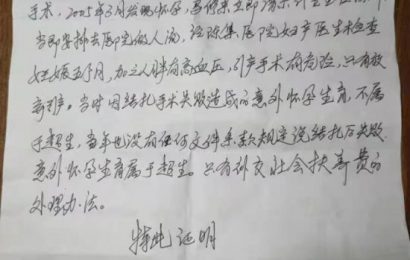 手术，2005年3月发现怀孕，
当即安排去医院做人流，经陈集医院妇产医生检查
妊娠五个月，加之人胖有高血压，引产手术有危险，只有放
弃引产。当时因结扎手术失败造成的意外怀孕生育，不属
于超生，当年也没有任何文件条款规定说结扎后失败
意外怀孕生育属于超生。只有补交社会扶养费的
处理办法。
特此证明